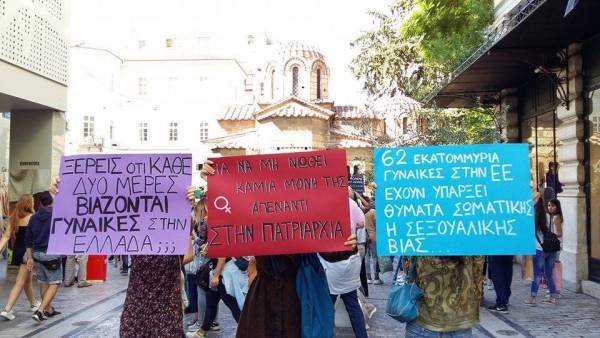 ΞΕΡΕΙΣ ΟΤΙ ΚΑΘΕ
ΔΥΟ ΜΕΡΕΣ
ΒΙΑΖΟΝΤΑΙ
ΓΥΝΑΙΚΕΣ ΣΤΗΝ
ΕΛΛΑΔΑ;;;
ΓΙΑ ΝΑ ΜΗ ΝΙΩΘΕΙ
ΚΑΜΙΑ ΜΟΝΗ ΤΗΣ
ΑΠΕΝΑΝΤΙ
ΣΤΗΝ ΠΑΤΡΙΑΡΧΙΑ
62 ΕΚΑΤΟΜΜΥΡΙΑ
ΓΥΝΑΙΚΕΣ ΣΤΗΝ ΕΕ
ΕΧΟΥΝ ΥΠΑΡΞΕΙ
ΘΥΜΑΤΑ ΣΩΜΑΤΙΚΗΣ
Η ΣΕΞΟΥΑΛΙΚΗΣ
ΒΙΑΣ...